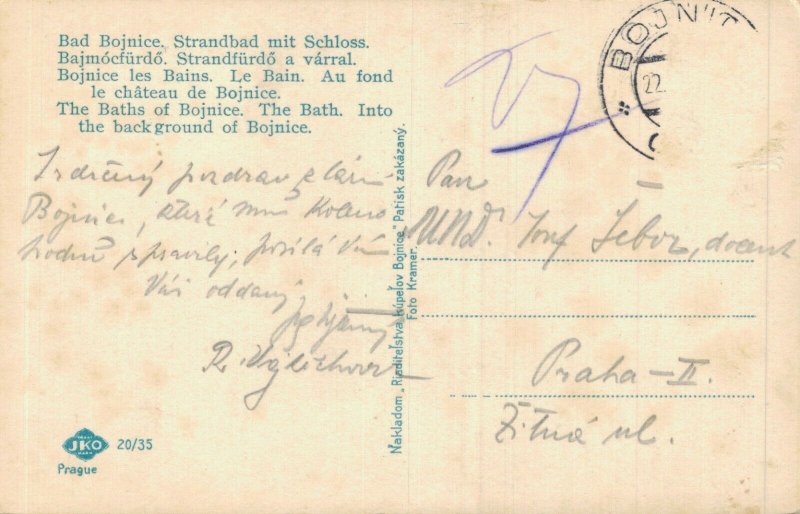 Bad Bojnice. Strandbad mit Schloss.
Bajmócfürdő. Strandfürdő a várral.
Bojnice les Bains. Le Bain. Au fond
le château de Bojnice.
The Baths of Bojnice. The Bath. Into
the background of Bojnice.
Srdečný pozdrav z lázní
Bojnice, které mně koleno
hodně spravily, posílá Vám
Váš oddaný
R.
JKO
20/35
Prague
Nakladom „Riaditeľstva kúpeľov Bojnice" Patisk zakázaný.
Foto Kramer.
BOJNI
22.
Pan
MUDr. Josef docent
Praha-II.
Žitná ul.